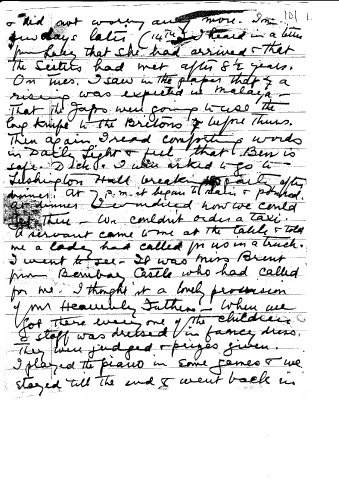 10/ 1.
& did not worry any more. In a
few days later (14th) I heard in a letter
from that she had arrived & that
the Sisters had met after 8½ years.
On Tues. I saw in the paper that a
rising was expected in Malaya –
That the Japs were going to use the
long knife to the Britons before Thurs.
Then again I read comforting words
in Daily Light & felt that Ben is
safe. I was asked to go to
Lushington Hall breaking party after
dinner. At 7 p.m. it began to rain & poured.
At dinner I wondered how we could
get there – We couldn't order a taxi.
A servant came to me at the table & told
me a lady had called for us in a truck.
I went to see – It was Miss Brent
from Bombay Castle who had called
for me. I thought it a lovely provision
of our Heavenly Father. When we
got there every one of the children
& staff was dressed in fancy dress.
They were judged & prizes given.
I played the piano in some games & we
stayed till the end & went back in